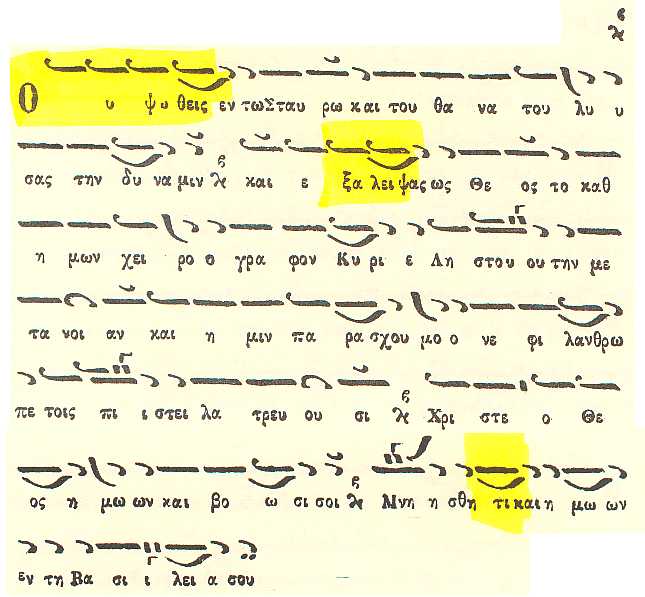 Ο υ ψω θεις εν τω Σταυ ρω και του θα να του λυ υ
σας την δυ να μιν και ε ξα λει ψας ως Θε ος το καθ
η μων χει ρο ο γρα φον Κυ ρι ε Λη στου ου την με
τα νοι αν και η μιν πα ρα σχου μο ο νε φι λανθρω
πε τοις πι ι στει λα τρευ ου σι Χρι στε ο Θε
ος η μω ων και βο ω σι σοι Μνη η σθη τι και η μω ων
εν τη Βα σι ι λει α σου